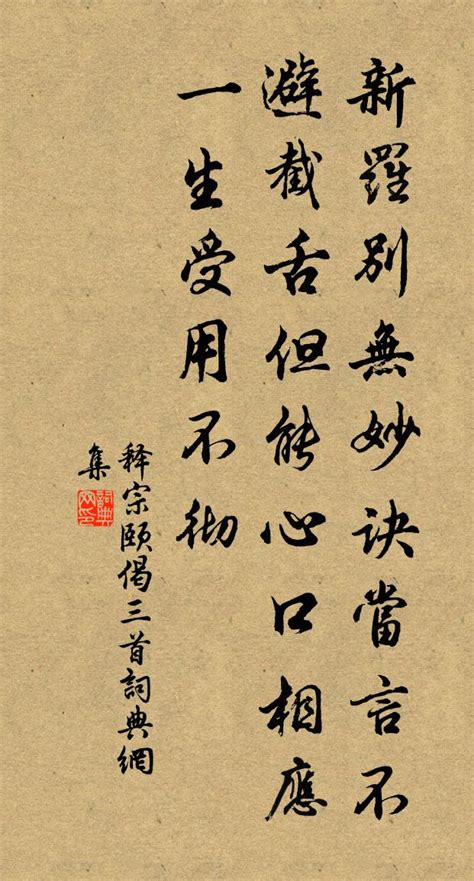 新羅別無妙訣當言不
避截舌但能心口相應
一生受用不彻
释宗颐偈三首詞典網
集
詞典網印